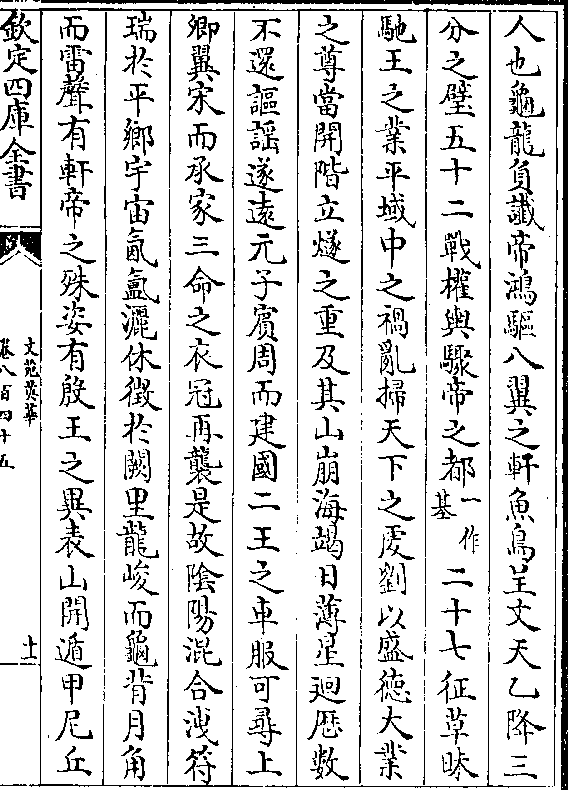 人也龜龍負讖帝鴻驅八翼之軒魚鳥呈文天乙降三
分之璧五十二戰權輿驟帝之都一作基二十七征草昧
馳王之業平域中之禍亂掃天下之虔劉以盛德大業
之尊當開階立燧之重及其山崩海竭日薄星迴歴數
不還謳謡遂逺元子賓周而建國二王之車服可尋上
卿翼宋而承家三命之衣冠再襲是故陰陽混合洩符
瑞於平鄉宇宙氤氲灑休徴於闕里龍峻而龜背月角
而雷聲有軒帝之殊姿有殷王之異表山開遁甲尼丘
欽定四庫全書
文苑英華
卷八百四十五
十一